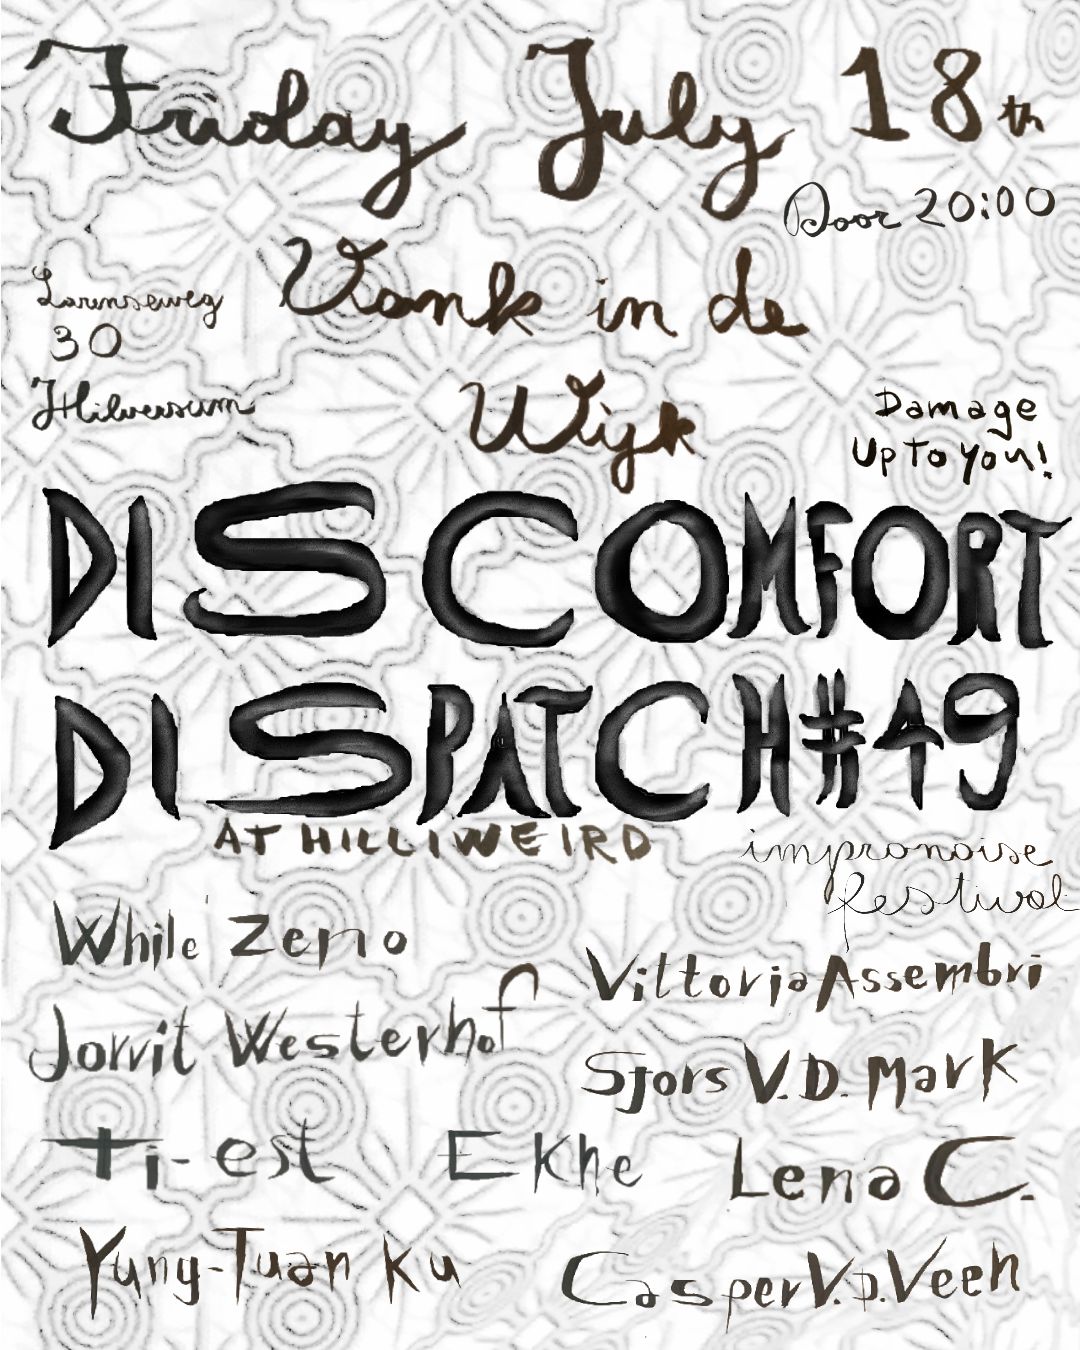 Friday July 18th
Door 20:00
Vonk in de
Wijk
Larenseweg
30
Hilversum
Damage
Up To You!
DISCOMFORT
DISPATCH #49
AT HILLIWEIRD
impronoise
festival
While Zeno
Vittoria Assembri
Jorrit Westerhof
Sjors V.D. Mark
Ti-est
EKhe
Lena C.
Yung-Tuan Ku
Casper V.D. Veen